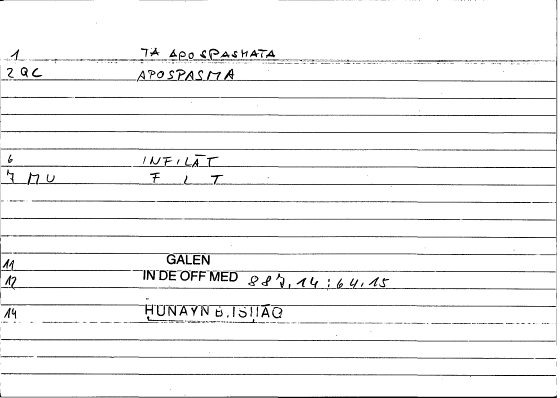 1 TA APOSPASMATA
2 QC APOSPASMA
6 INFILĀT
7 MU F I L T
11 GALEN
12 IN DE OFF MED 887,14:64.15
14 ḤUNAYN B.ISḤĀQ